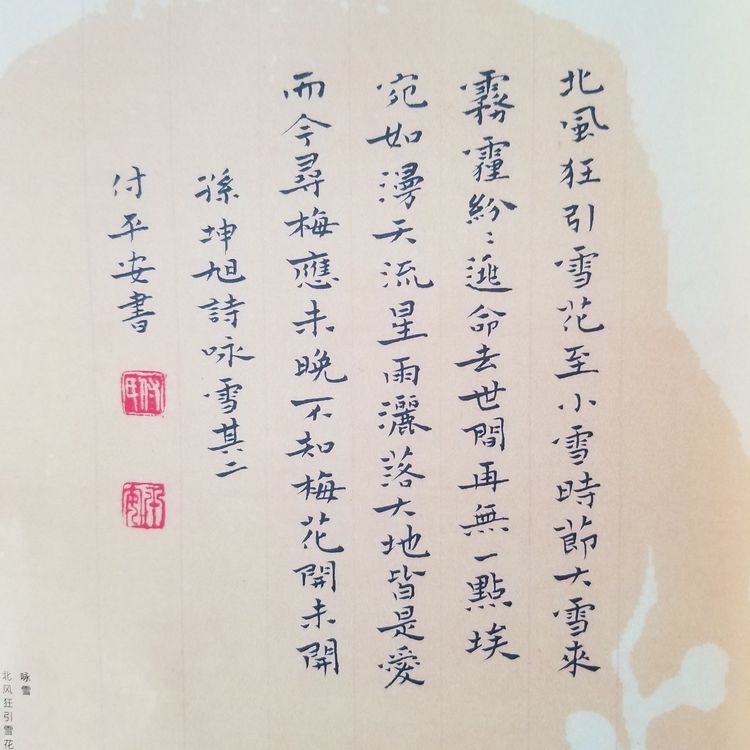 北風狂引雪花至小雪時節大雪來
霧霾紛紛逃命去世間再無一點埃
宛如漫天流星雨灑落大地皆是愛
而今尋梅應未晚不知梅花開未開
孫坤旭詩咏雪其二
付平安書
付印
平安
咏雪
北风狂引雪花